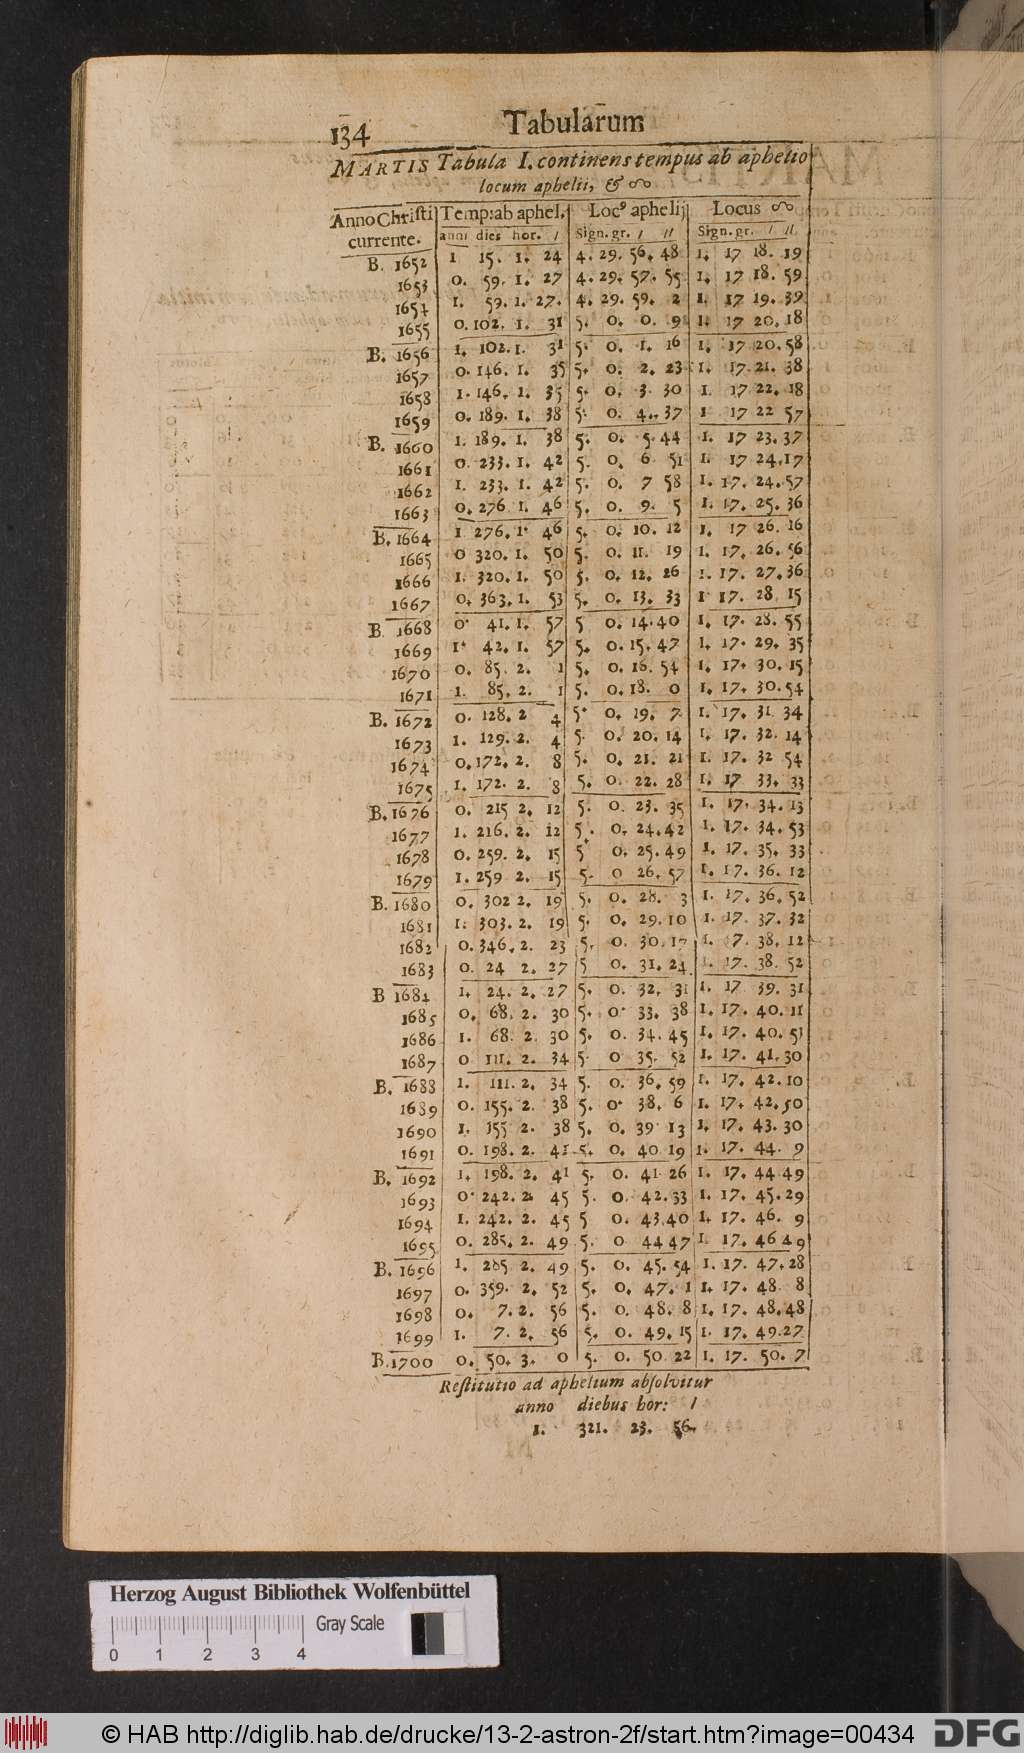 134 Tabularum
MARTIS Tabula I. continens tempus ab aphelio
locum aphelii, & ☊
Anno Christi Temp: ab aphel. Loc⁹ aphelij Locus ☊
currente. anni dies hor. / Sign. gr. / // Sign. gr. / //
B. 1652 1 15. 1. 24 4. 29. 56. 48 1. 17 18. 19
1653 0. 59. 1. 27 4. 29. 57. 55 1. 17 18. 59
1654 1. 59. 1. 27. 4. 29. 59. 2 1. 17 19. 39
1655 0. 102. 1. 31 5. 0. 0. 9 1. 17 20. 18
B. 1656 1. 102. 1. 31 5. 0. 1. 16 1. 17 20. 58
1657 0. 146. 1. 35 5. 0. 2. 23 1. 17. 21. 38
1658 1. 146. 1. 35 5. 0. 3. 30 1. 17 22. 18
1659 0. 189. 1. 38 5. 0. 4. 37 1 17 22 57
B. 1660 1. 189. 1. 38 5. 0. 5. 44 1. 17 23. 37
1661 0. 233. 1. 42 5. 0. 6 51 1. 17 24. 17
1662 1. 233. 1. 42 5. 0. 7 58 1. 17. 24. 57
1663 0. 276 1. 46 5. 0. 9. 5 1. 17. 25. 36
B. 1664 1 276. 1. 46 5. 0. 10. 12 1. 17 26. 16
1665 0 320. 1. 50 5. 0. 11. 19 1. 17. 26. 56
1666 1. 320. 1. 50 5. 0. 12. 26 1. 17. 27. 36
1667 0. 363. 1. 53 5. 0. 13. 33 1 17. 28. 15
B. 1668 0. 41. 1. 57 5 0. 14. 40 1. 17. 28. 55
1669 1. 42. 1. 57 5. 0. 15. 47 1. 17. 29. 35
1670 0. 85. 2. 1 5. 0. 16. 54 1. 17. 30. 15
1671 1. 85. 2. 1 5. 0. 18. 0 1. 17. 30. 54
B. 1672 0. 128. 2 4 5. 0. 19. 7 1. 17. 31 34
1673 1. 129. 2. 4 5. 0. 20. 14 1. 17. 32. 14
1674 0. 172. 2. 8 5. 0. 21. 21 1. 17. 32 54
1675 1. 172. 2. 8 5. 0. 22. 28 1. 17 33. 33
B. 1676 0. 215 2. 12 5. 0. 23. 35 1. 17. 34. 13
1677 1. 216. 2. 12 5. 0. 24. 42 1. 17. 34. 53
1678 0. 259. 2. 15 5 0. 25. 49 1. 17. 35. 33
1679 1. 259 2. 15 5. 0 26. 57 1. 17. 36. 12
B. 1680 0. 302 2. 19 5. 0. 28. 3 1. 17. 36. 52
1681 1. 303. 2. 19 5. 0. 29. 10 1. 17. 37. 32
1682 0. 346. 2. 23 5. 0. 30. 17 1. 7. 38. 12
1683 0. 24 2. 27 5 0. 31. 24 1. 17. 38. 52
B 1684 1. 24. 2. 27 5. 0. 32. 31 1. 17 39. 31
1685 0. 68. 2. 30 5. 0. 33. 38 1. 17. 40. 11
1686 1. 68. 2. 30 5. 0. 34. 45 1. 17. 40. 51
1687 0 111. 2. 34 5. 0 35. 52 1. 17. 41. 30
B. 1688 1. 111. 2. 34 5. 0. 36. 59 1. 17. 42. 10
1689 0. 155. 2. 38 5. 0. 38. 6 1. 17. 42. 50
1690 1. 155 2. 38 5. 0. 39 13 1. 17. 43. 30
1691 0. 198. 2. 41 5. 0. 40 19 1. 17. 44. 9
B. 1692 1. 198. 2. 41 5. 0. 41. 26 1. 17. 44 49
1693 0. 242. 2. 45 5. 0. 42. 33 1. 17. 45. 29
1694 1. 242. 2. 45 5 0. 43. 40 1. 17. 46. 9
1695 0. 285. 2. 49 5. 0 44 47 1. 17. 46 49
B. 1696 1. 285 2. 49 5. 0. 45. 54 1. 17. 47. 28
1697 0. 359. 2. 52 5. 0. 47. 1 1. 17. 48. 8
1698 0. 7. 2. 56 5. 0. 48. 8 1. 17. 48. 48
1699 1. 7. 2. 56 5. 0. 49. 15 1. 17. 49. 27
B. 1700 0. 50. 3. 0 5. 0. 50 22 1. 17. 50. 7
Restitutio ad aphelium absolvitur
anno diebus hor: /
1. 321. 23. 56.
Herzog August Bibliothek Wolfenbüttel
Gray Scale
0 1 2 3 4
© HAB http://diglib.hab.de/drucke/13-2-astron-2f/start.htm?image=00434 DFG